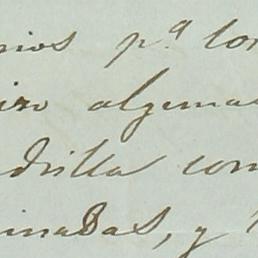 rios p.ª con
iro algunas
drilla com
inadas, y